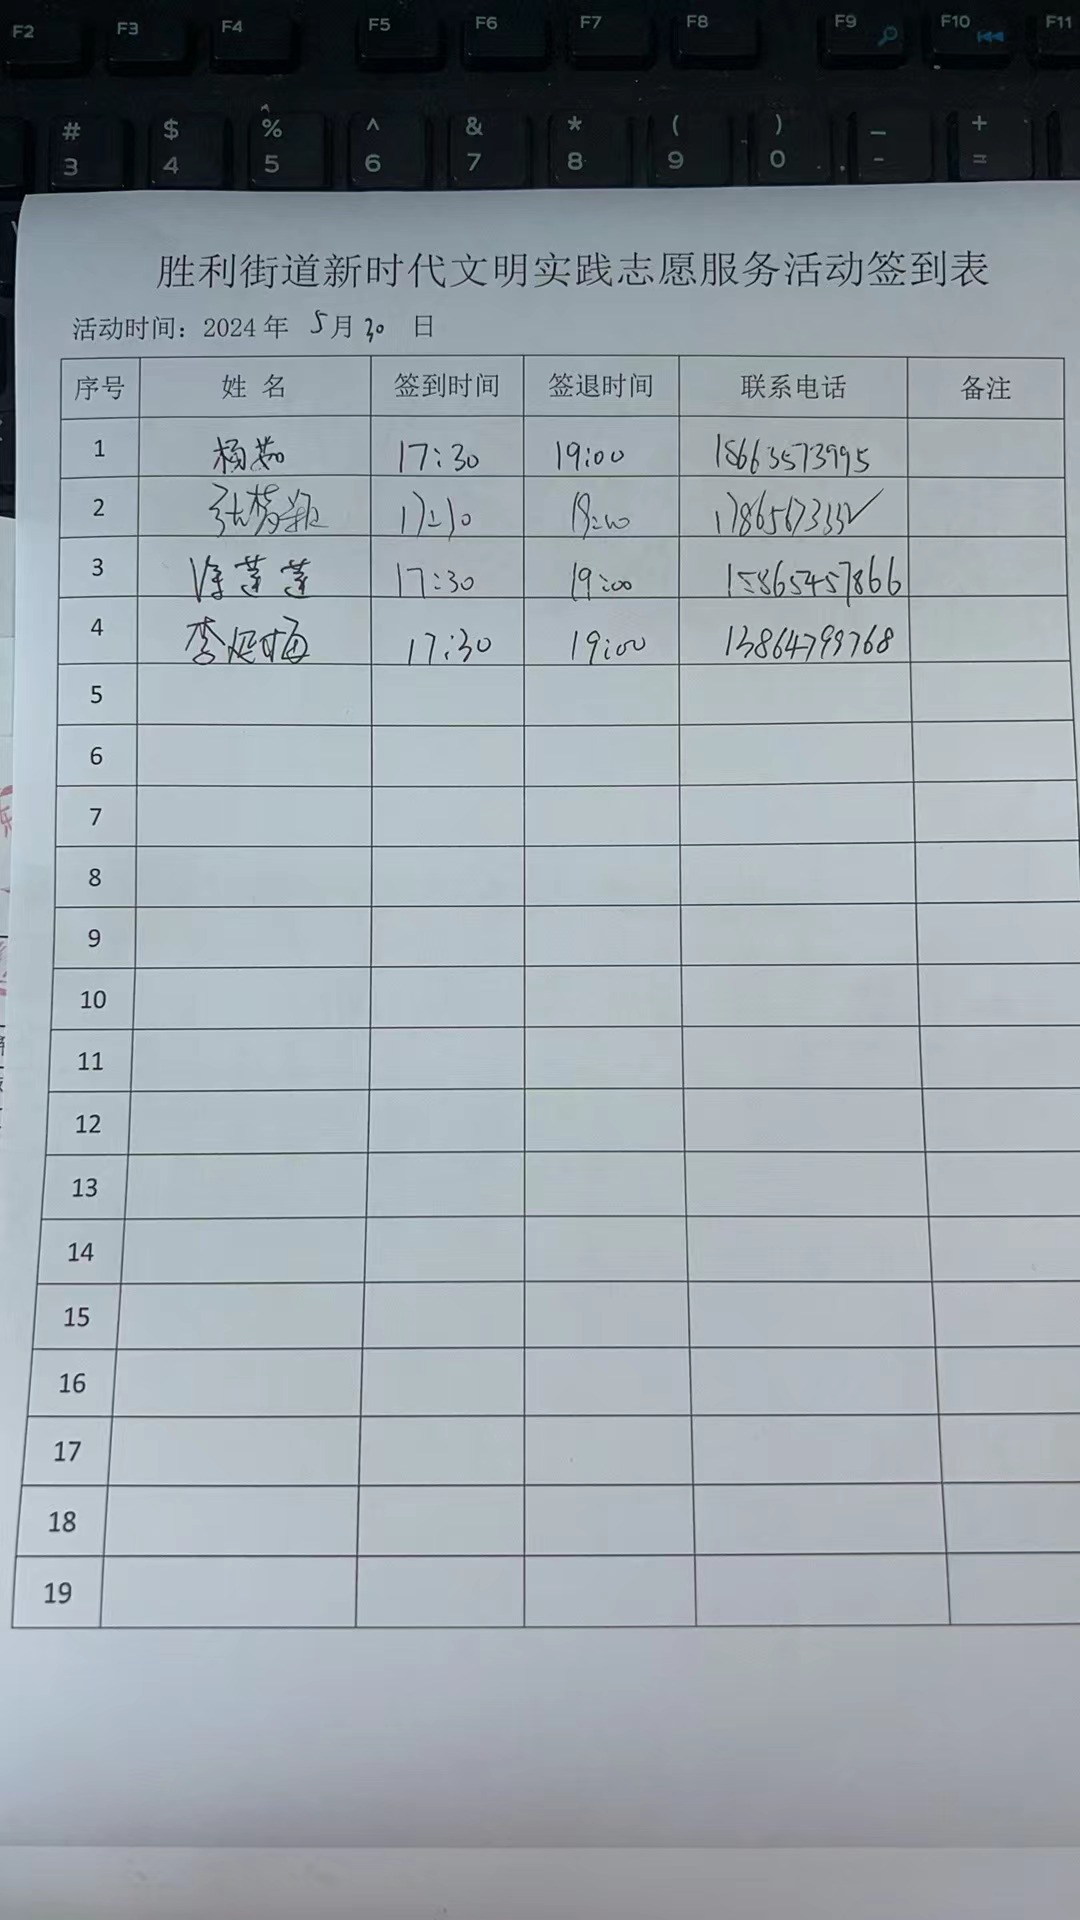 F2 F3 F4 F5 F6 F7 F8 F9 F10 F11
# $ % ^ & * ( ) _ +
3 4 5 6 7 8 9 0 - =
胜利街道新时代文明实践志愿服务活动签到表
活动时间：2024 年 5 月 30 日
序号 姓 名 签到时间 签退时间 联系电话 备注
1 杨茹 17:30 19:00 18663573995
2 张
3 徐莲莲 17:30 19:00 15865457866
4 李延梅 17:30 19:00 13864799768
5
6
7
8
9
10
11
12
13
14
15
16
17
18
19